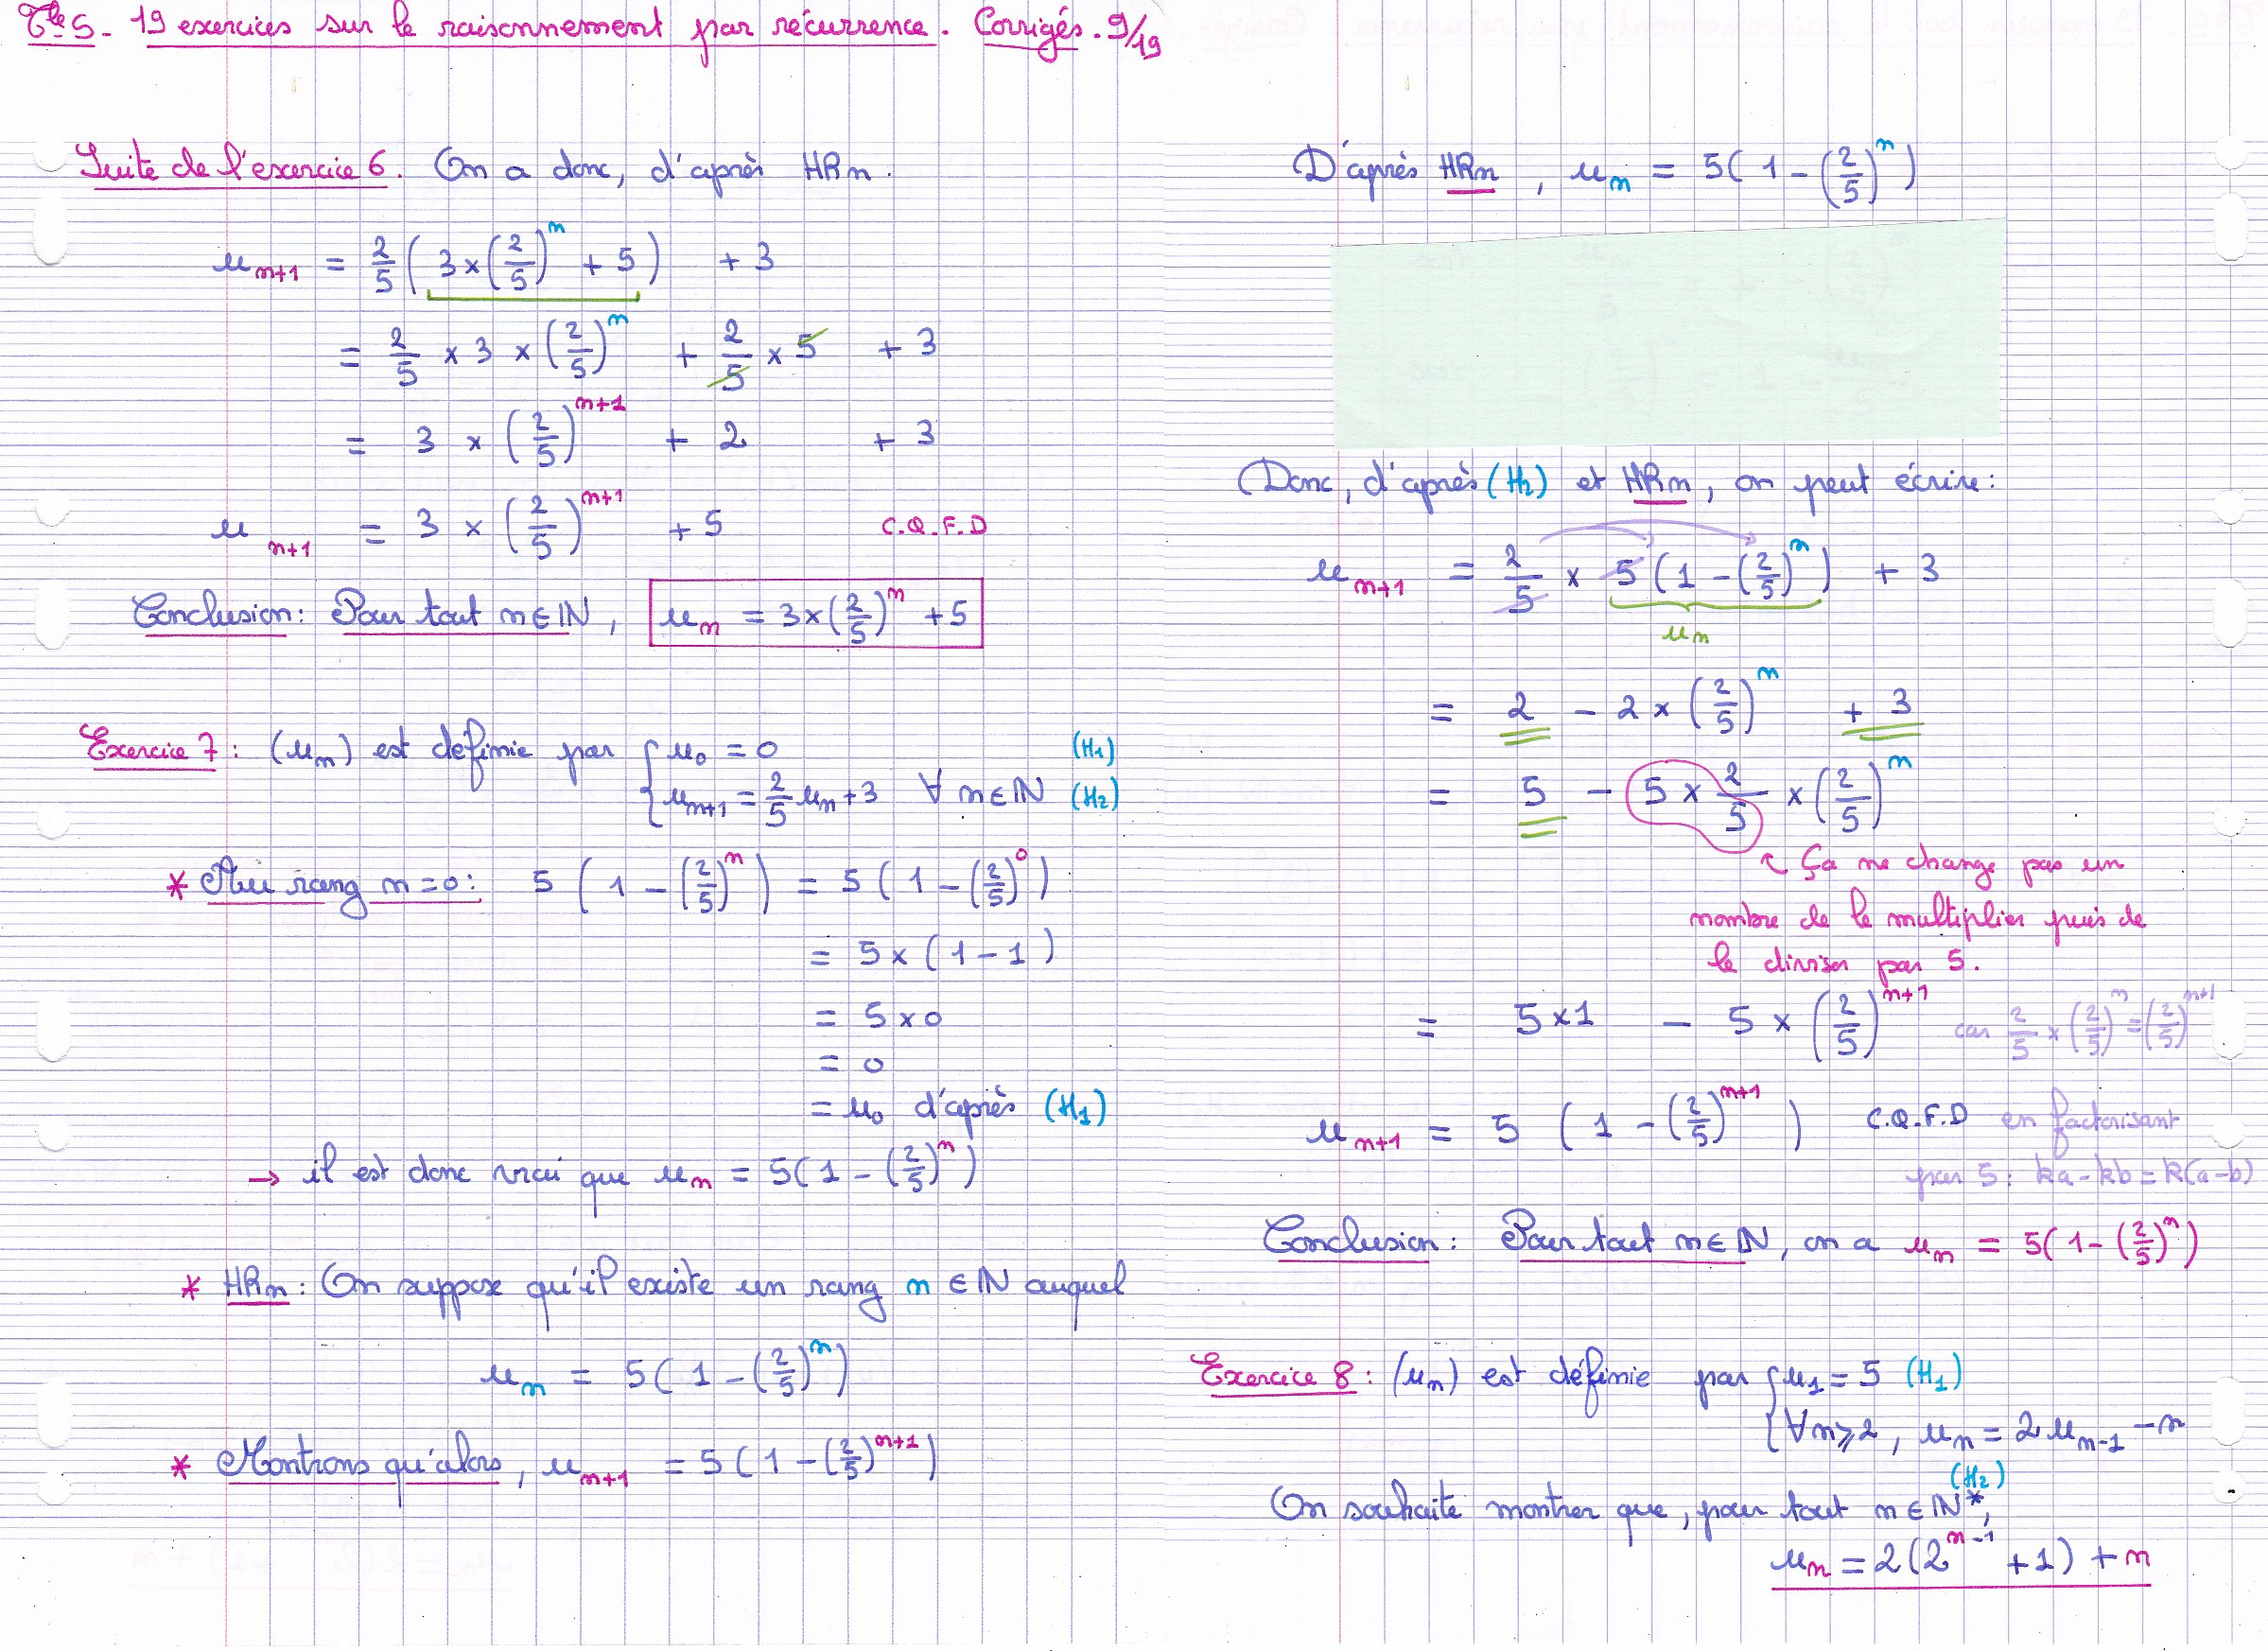 Tle S - 19 exercices sur le raisonnement par récurrence. Corrigés. 9/19
Suite de l'exercice 6. On a donc, d'après HRn.
u_{n+1} = 2/5 ( 3 × (2/5)^n + 5 ) + 3
= 2/5 × 3 × (2/5)^n + 2/5 × 5 + 3
= 3 × (2/5)^{n+1} + 2 + 3
u_{n+1} = 3 × (2/5)^{n+1} + 5 C.Q.F.D
Conclusion : Pour tout n ∈ ℕ, u_n = 3 × (2/5)^n + 5
Exercice 7 : (u_n) est définie par { u_0 = 0 (H1)
u_{n+1} = 2/5 u_n + 3 ∀ n ∈ ℕ (H2)
* Au rang n = 0 : 5 ( 1 - (2/5)^n ) = 5 ( 1 - (2/5)^0 )
= 5 × ( 1 - 1 )
= 5 × 0
= 0
= u_0 d'après (H1)
→ il est donc vrai que u_n = 5 ( 1 - (2/5)^n )
* HRn : On suppose qu'il existe un rang n ∈ ℕ auquel
u_n = 5 ( 1 - (2/5)^n )
* Montrons qu'alors, u_{n+1} = 5 ( 1 - (2/5)^{n+1} )
D'après HRn, u_n = 5 ( 1 - (2/5)^n )
Donc, d'après (H2) et HRn, on peut écrire :
u_{n+1} = 2/5 × 5 ( 1 - (2/5)^n ) + 3
u_n
= 2 - 2 × (2/5)^n + 3
= 5 - 5 × 2/5 × (2/5)^n
↖ Ça ne change pas un
nombre de le multiplier puis de
le diviser par 5.
= 5 × 1 - 5 × (2/5)^{n+1} car 2/5 × (2/5)^n = (2/5)^{n+1}
u_{n+1} = 5 ( 1 - (2/5)^{n+1} ) C.Q.F.D en factorisant
par 5 : ka - kb = k(a-b)
Conclusion : Pour tout n ∈ ℕ, on a u_n = 5 ( 1 - (2/5)^n )
Exercice 8 : (u_n) est définie par { u_1 = 5 (H1)
∀ n ⩾ 2, u_n = 2 u_{n-1} - n
(H2)
On souhaite montrer que, pour tout n ∈ ℕ*,
u_n = 2 ( 2^{n-1} + 1 ) + n